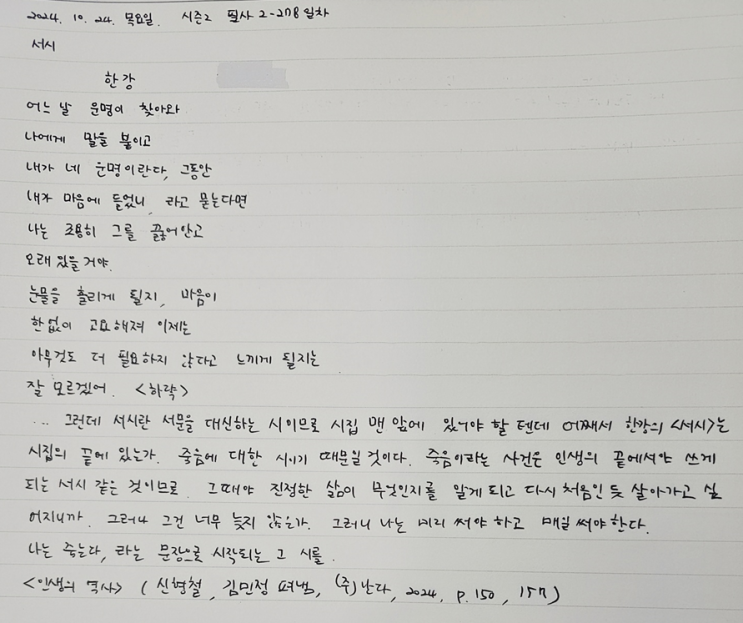 2024. 10. 24. 목요일. 시즌2 필사 2-278일차
서시
한강
어느 날 운명이 찾아와
나에게 말을 붙이고
내가 네 운명이란다, 그동안
내가 마음에 들었니, 라고 묻는다면
나는 조용히 그를 끌어안고
오래 있을거야.
눈물을 흘리게 될지, 마음이
한없이 고요해져 이제는
아무것도 더 필요하지 않다고 느끼게 될지는
잘 모르겠어. <하략>
... 그런데 서시란 서문을 대신하는 시이므로 시집 맨 앞에 있어야 할 텐데 어째서 한강의 <서시>는
시집의 끝에 있는가. 죽음에 대한 시이기 때문일 것이다. 죽음이라는 사건은 인생의 끝에서야 쓰게
되는 서시 같은 것이므로. 그때야 진정한 삶이 무엇인지를 알게 되고 다시 처음인 듯 살아가고 싶
어지니까. 그러나 그건 너무 늦지 않은가. 그러니 나는 미리 써야 하고 매일 써야 한다.
나는 죽는다, 라는 문장으로 시작되는 그 시를.
<인생의 역사> (신형철, 김민정 펴냄, (주)난다, 2024, p.150, 157)